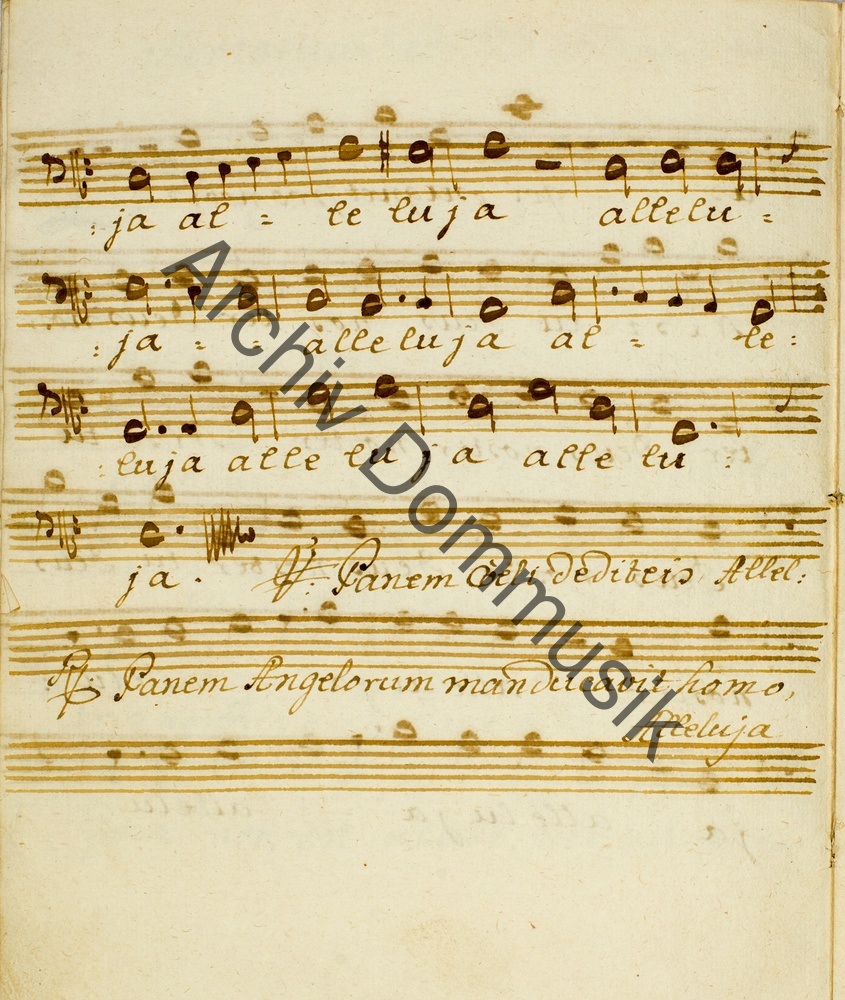 : ja al = le lu ja allelu =
: ja = = alleluja al = le :
: luja alle lu ja alle lu :
ja . ℣: Panem Coeli dediteis Allel:
℟. Panem Angelorum manducavit homo,
Alleluja
Archiv Dommusik